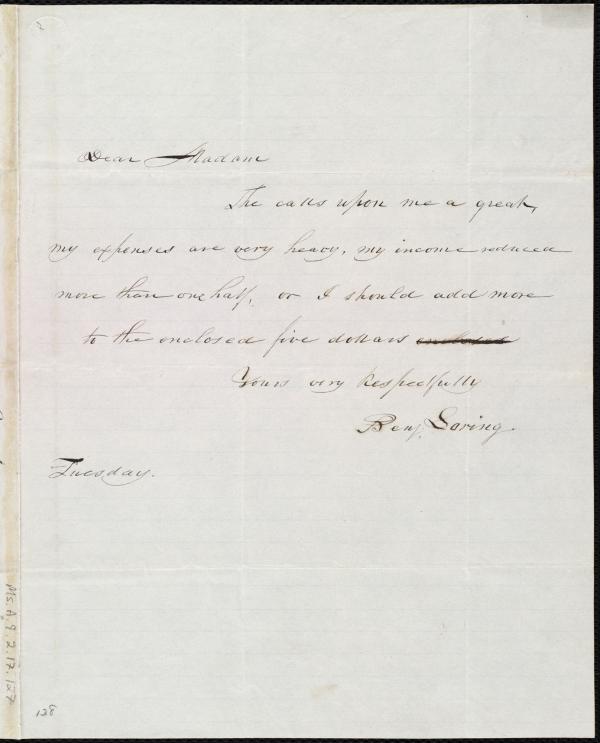 Dear Madam
The calls upon me a great,
my expenses are very heavy, my income reduced
more than one half, or I should add more
to the enclosed five dollars enclosed
Yours very Respectfully
Benj. Loring.
Tuesday.
Ms. A. 9. 2. 17. 127
128